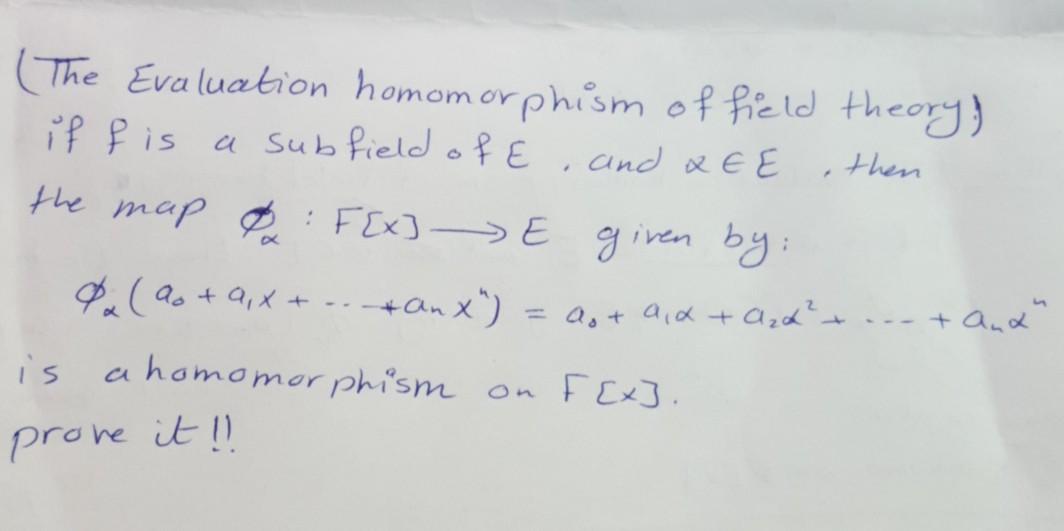 (The Evaluation homomorphism of field theory)
if f is a subfield of E , and α ∈ E , then
the map ϕ_α : F[x] → E given by:
ϕ_α (a₀ + a₁x + --- + aₙxⁿ) = a₀ + a₁α + a₂α² + --- + aₙαⁿ
is a homomorphism on F[x].
prove it !!